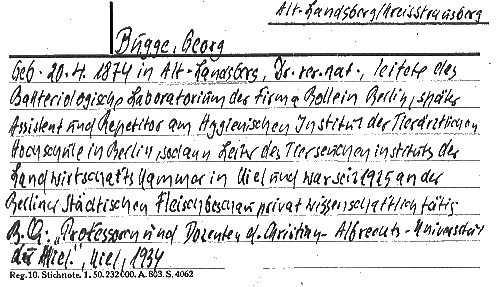 Alt-Landsberg/Kreis Strausberg
Bugge, Georg
Geb. 20.4.1874 in Alt-Landsberg, Dr. rer. nat., leitete das
Bakteriologische Laboratorium der Firma Bolle in Berlin, später
Assistent und Repetitor am Hygienischen Institut der Tierärztlichen
Hochschule in Berlin, sodann Leiter des Tierseucheninstituts der
Landwirtschaftskammer in Kiel und war seit 1925 an der
Berliner Städtischen Fleischbeschau privat wissenschaftlich tätig
B. Qu: "Professoren und Dozenten d. Christian-Albrechts-Universität
zu Kiel.", Kiel, 1934
Reg. 10. Stichnote. 1. 50. 232000. A. 803. S. 4062